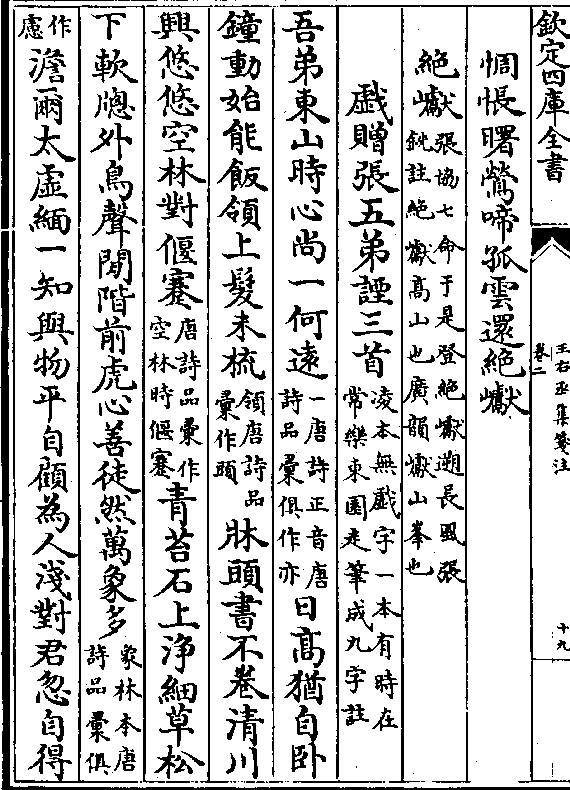 欽定四庫全書
王右丞集箋注
卷二
十九
惆悵曙鶯啼孤雲還絶巘
絶巘張協七命于是登絶巘遡長風張
銑註絶巘高山也廣韻巘山峯也
戯贈張五弟諲三首凌本無戯字一本有時在
常樂東園走筆成九字註
吾弟東山時心尚一何遠一唐詩正音唐
詩品彙俱作亦日髙猶自卧
鐘動始能飯領上髮未梳領唐詩品
彙作頭牀頭書不卷清川
興悠悠空林對偃蹇唐詩品彙作
空林時偃蹇青苔石上浄細草松
下軟牕外鳥聲閒階前虎心善徒然萬象多象林本唐
詩品彙俱
作
慮澹爾太虚緬一知與物平自顧為人淺對君忽自得